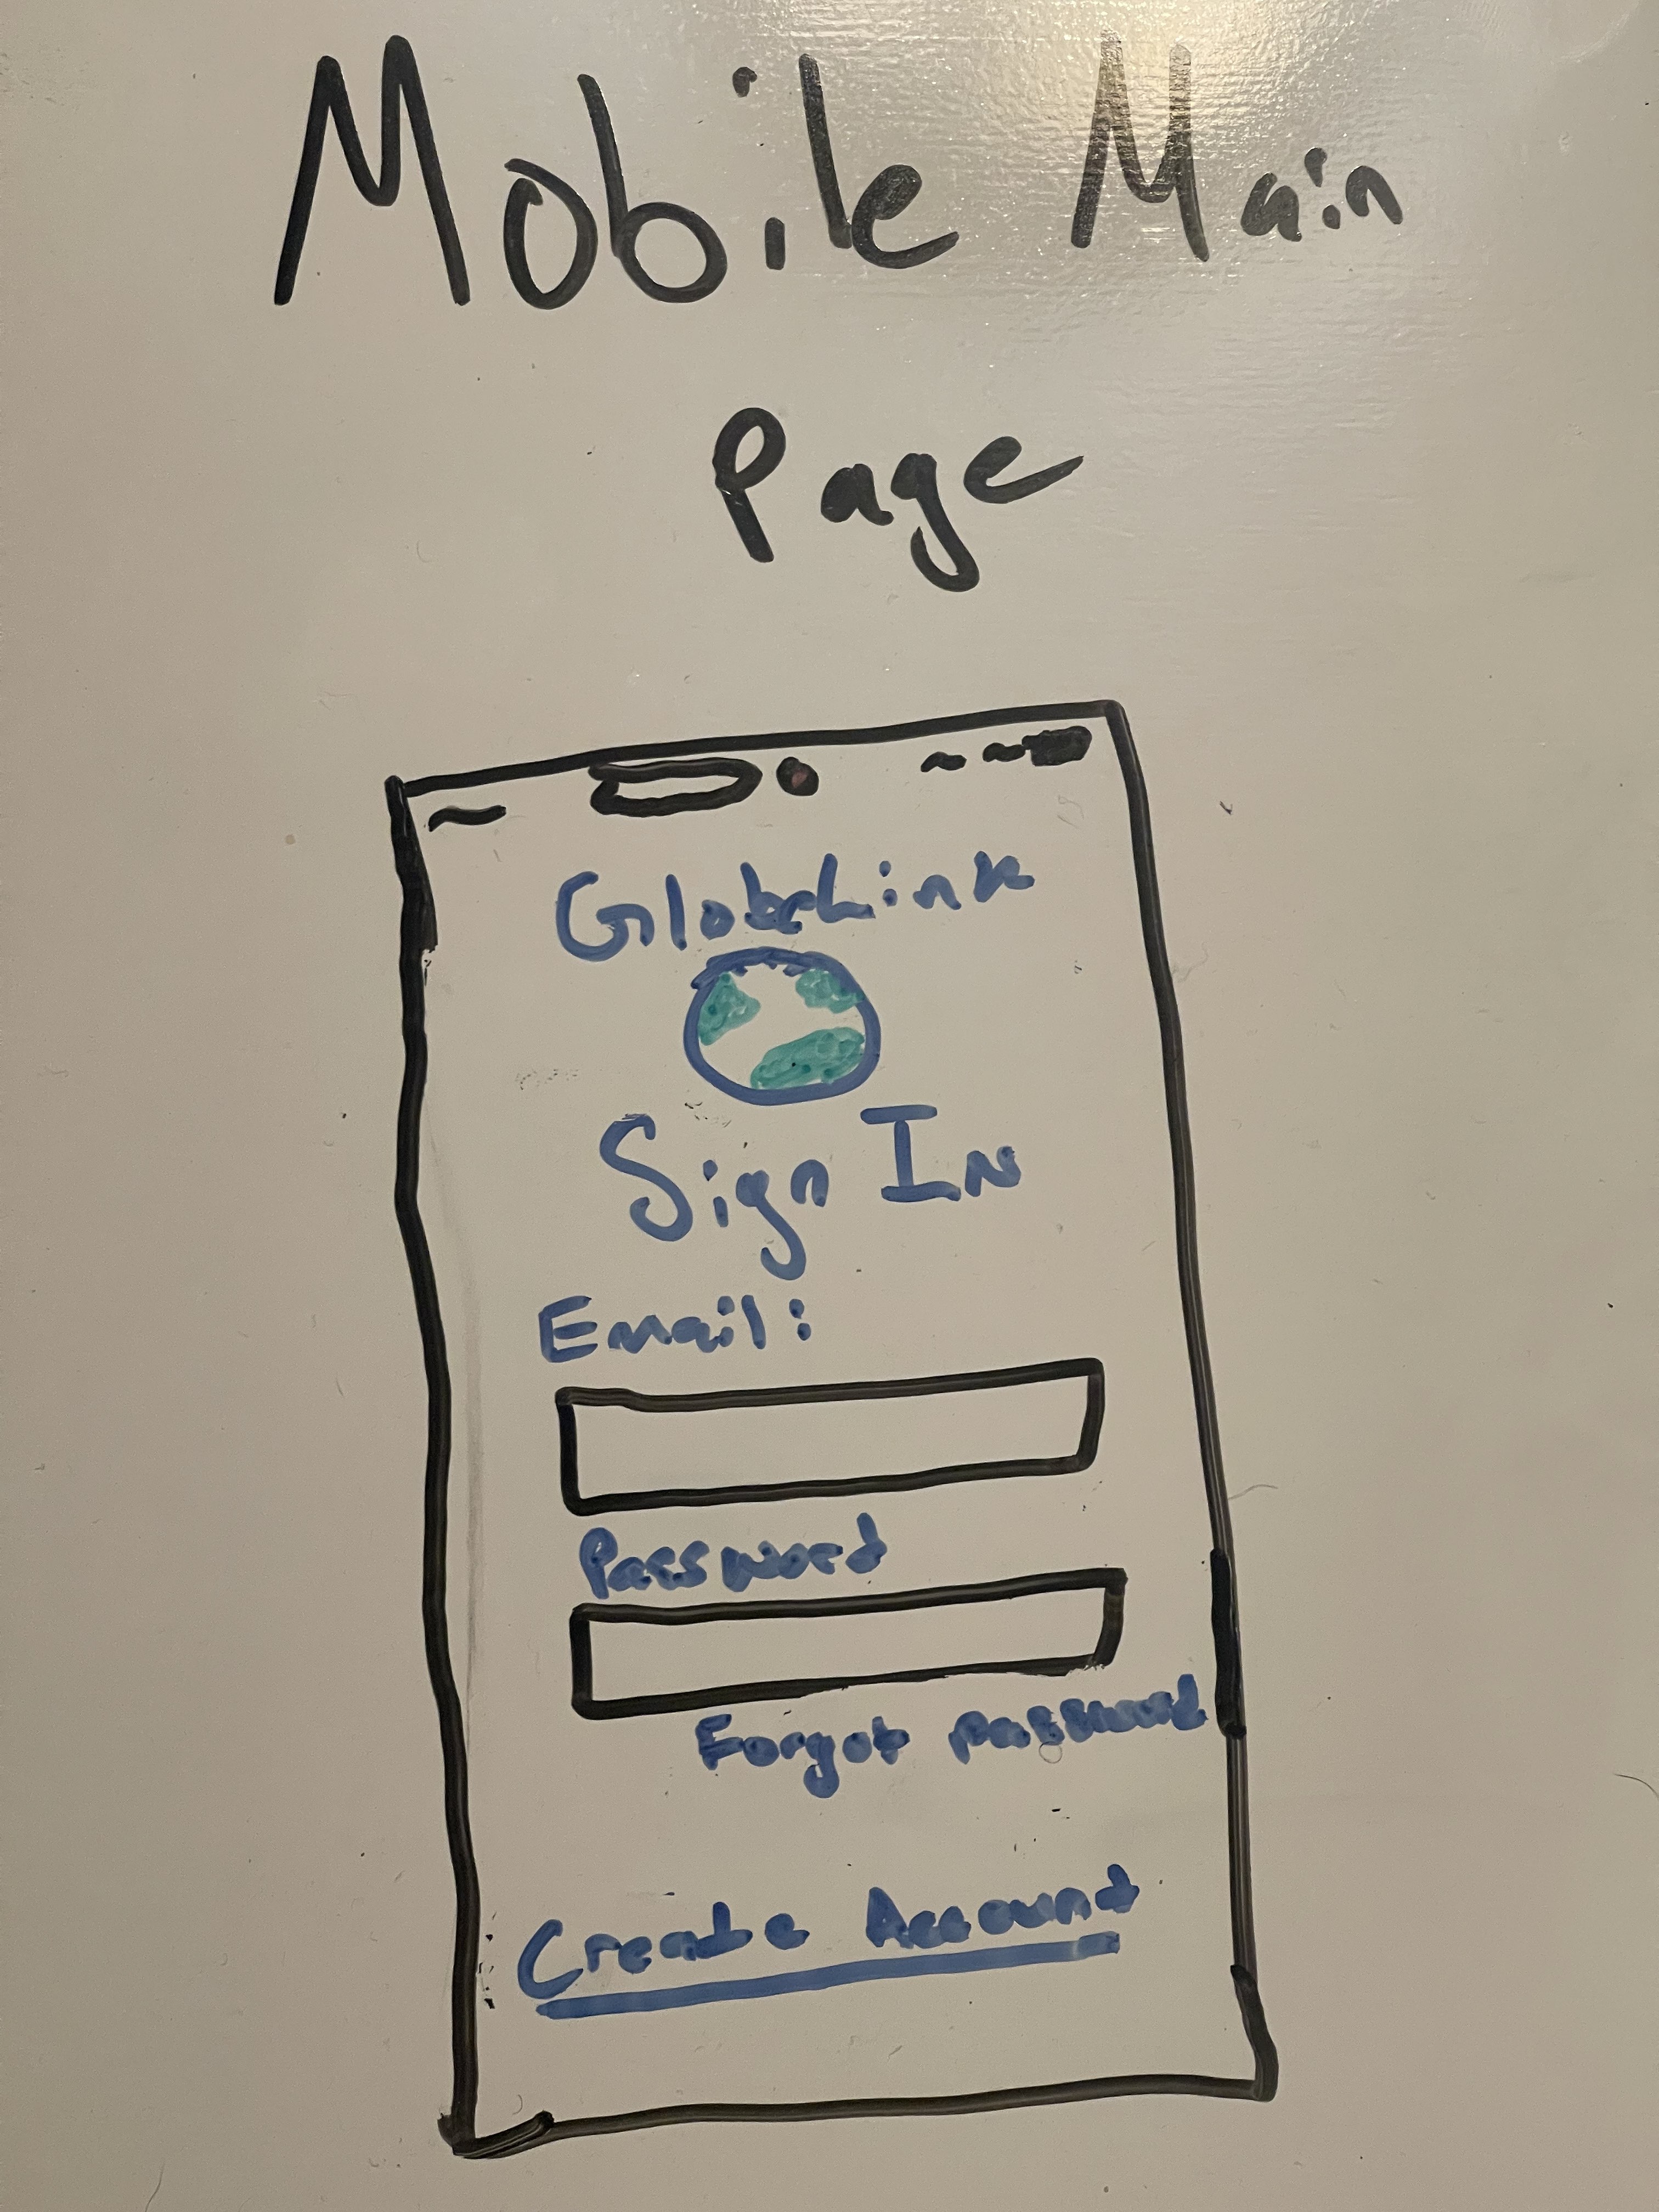 Mobile Main
Page
GlobeLink
Sign In
Email:
Password
Forgot password
Create Account